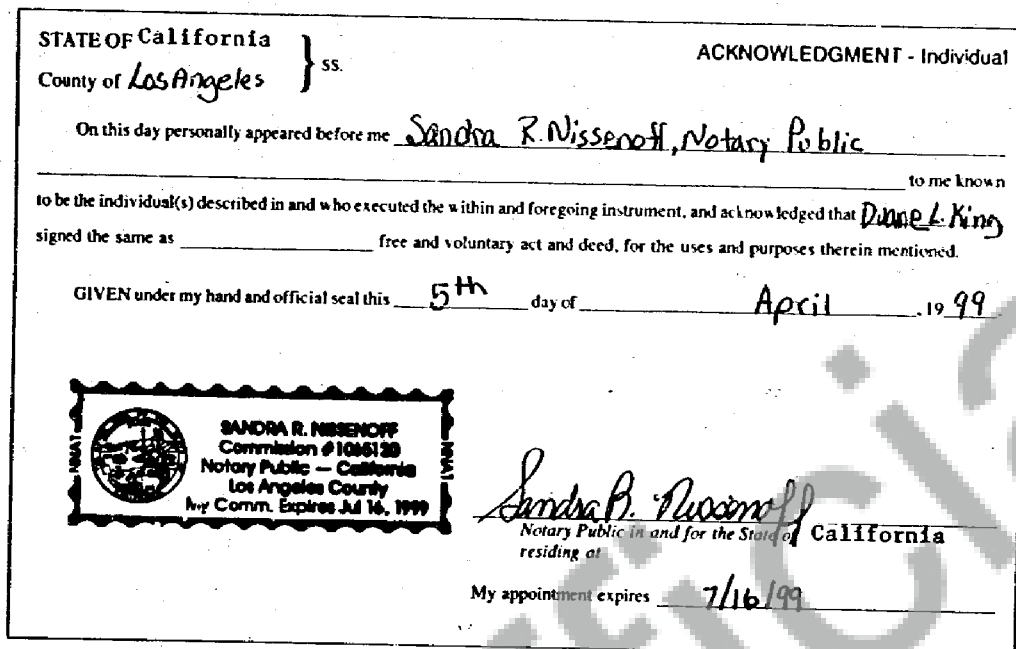 STATE OF California
County of Los Angeles
} ss.
ACKNOWLEDGMENT - Individual
On this day personally appeared before me Sandra R. Nissenoff, Notary Public
to me known
to be the individual(s) described in and who executed the within and foregoing instrument, and acknowledged that Duane L. King
signed the same as free and voluntary act and deed, for the uses and purposes therein mentioned.
GIVEN under my hand and official seal this 5th day of April , 19 99
NNA1
SANDRA R. NISSENOFF
Commission #1065120
Notary Public — California
Los Angeles County
My Comm. Expires Jul 16, 1999
NNA1
Sandra R. Nissenoff
Notary Public in and for the State of California
residing at
My appointment expires 7/16/99